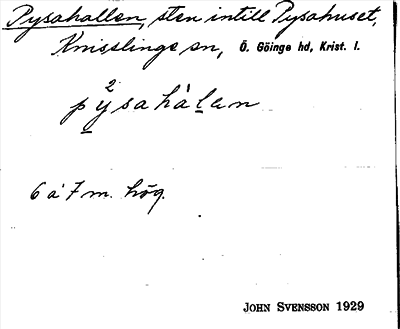 Pysahallen, sten intill Pysahuset,
Knisslinge sn, Ö. Göinge hd, Krist. l.
2
pysahàlen
6 à 7 m. hög.
JOHN SVENSSON 1929